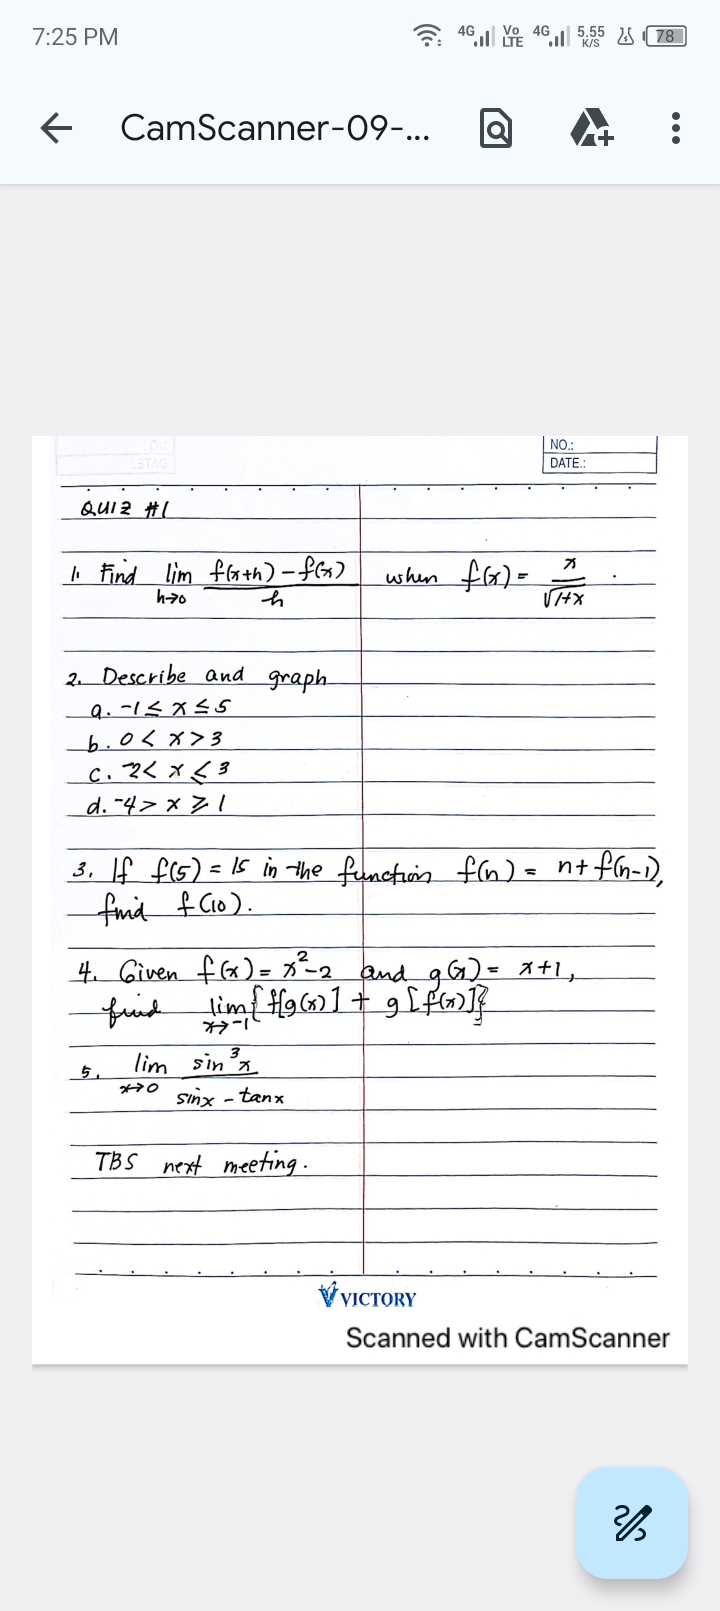 7:25 PM 4G Vo LTE 4G 5.55 K/S 78
CamScanner-09-...
NO.:
DATE.:
QUIZ #1
1. Find lim h→0 f(x+h) - f(x) / h when f(x) = x / √1+x .
2. Describe and graph
a. -1 ≤ x ≤ 5
b. 0 < x > 3
c. -2 < x < 3
d. -4 > x ≥ 1
3. If f(5) = 15 in the function f(n) = n + f(n-1),
find f(10).
4. Given f(x) = x²-2 and g(x) = x+1,
find lim x→-1 { f[g(x)] + g[f(x)] }
5. lim x→0 sin³x / sinx - tanx
TBS next meeting.
VICTORY
Scanned with CamScanner